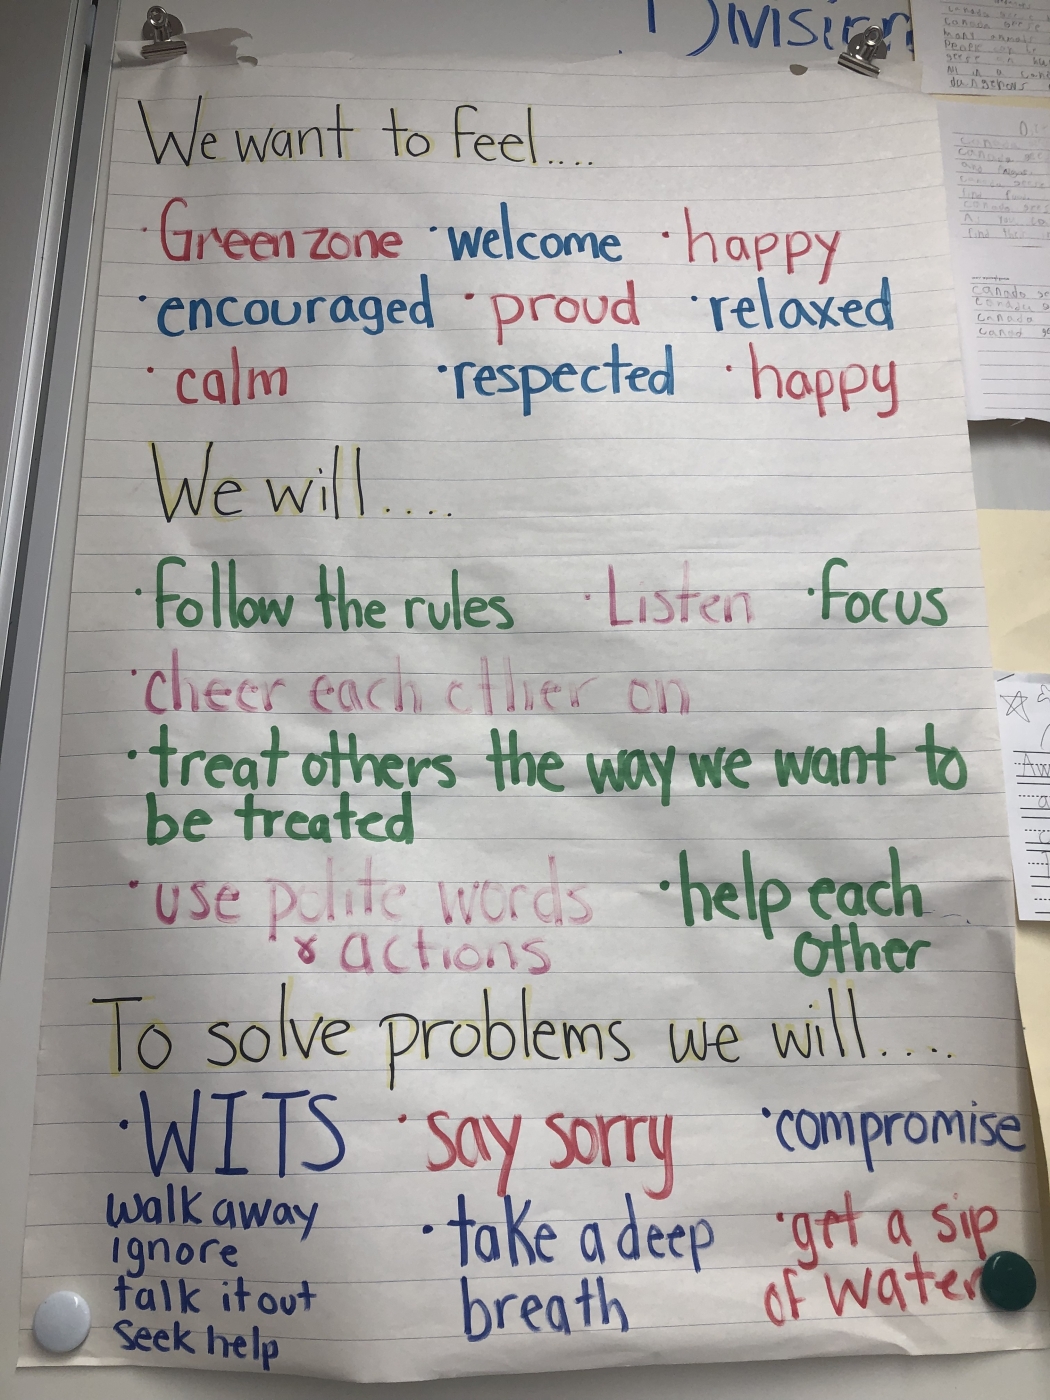 Division
We want to feel....
· Green zone · welcome · happy
· encouraged · proud · relaxed
· calm · respected · happy
We will....
· follow the rules · Listen · focus
· cheer each other on
· treat others the way we want to
be treated
· use polite words · help each
& actions other
To solve problems we will....
· WITS · say sorry · compromise
walk away · take a deep · get a sip
ignore breath of water
talk it out
seek help